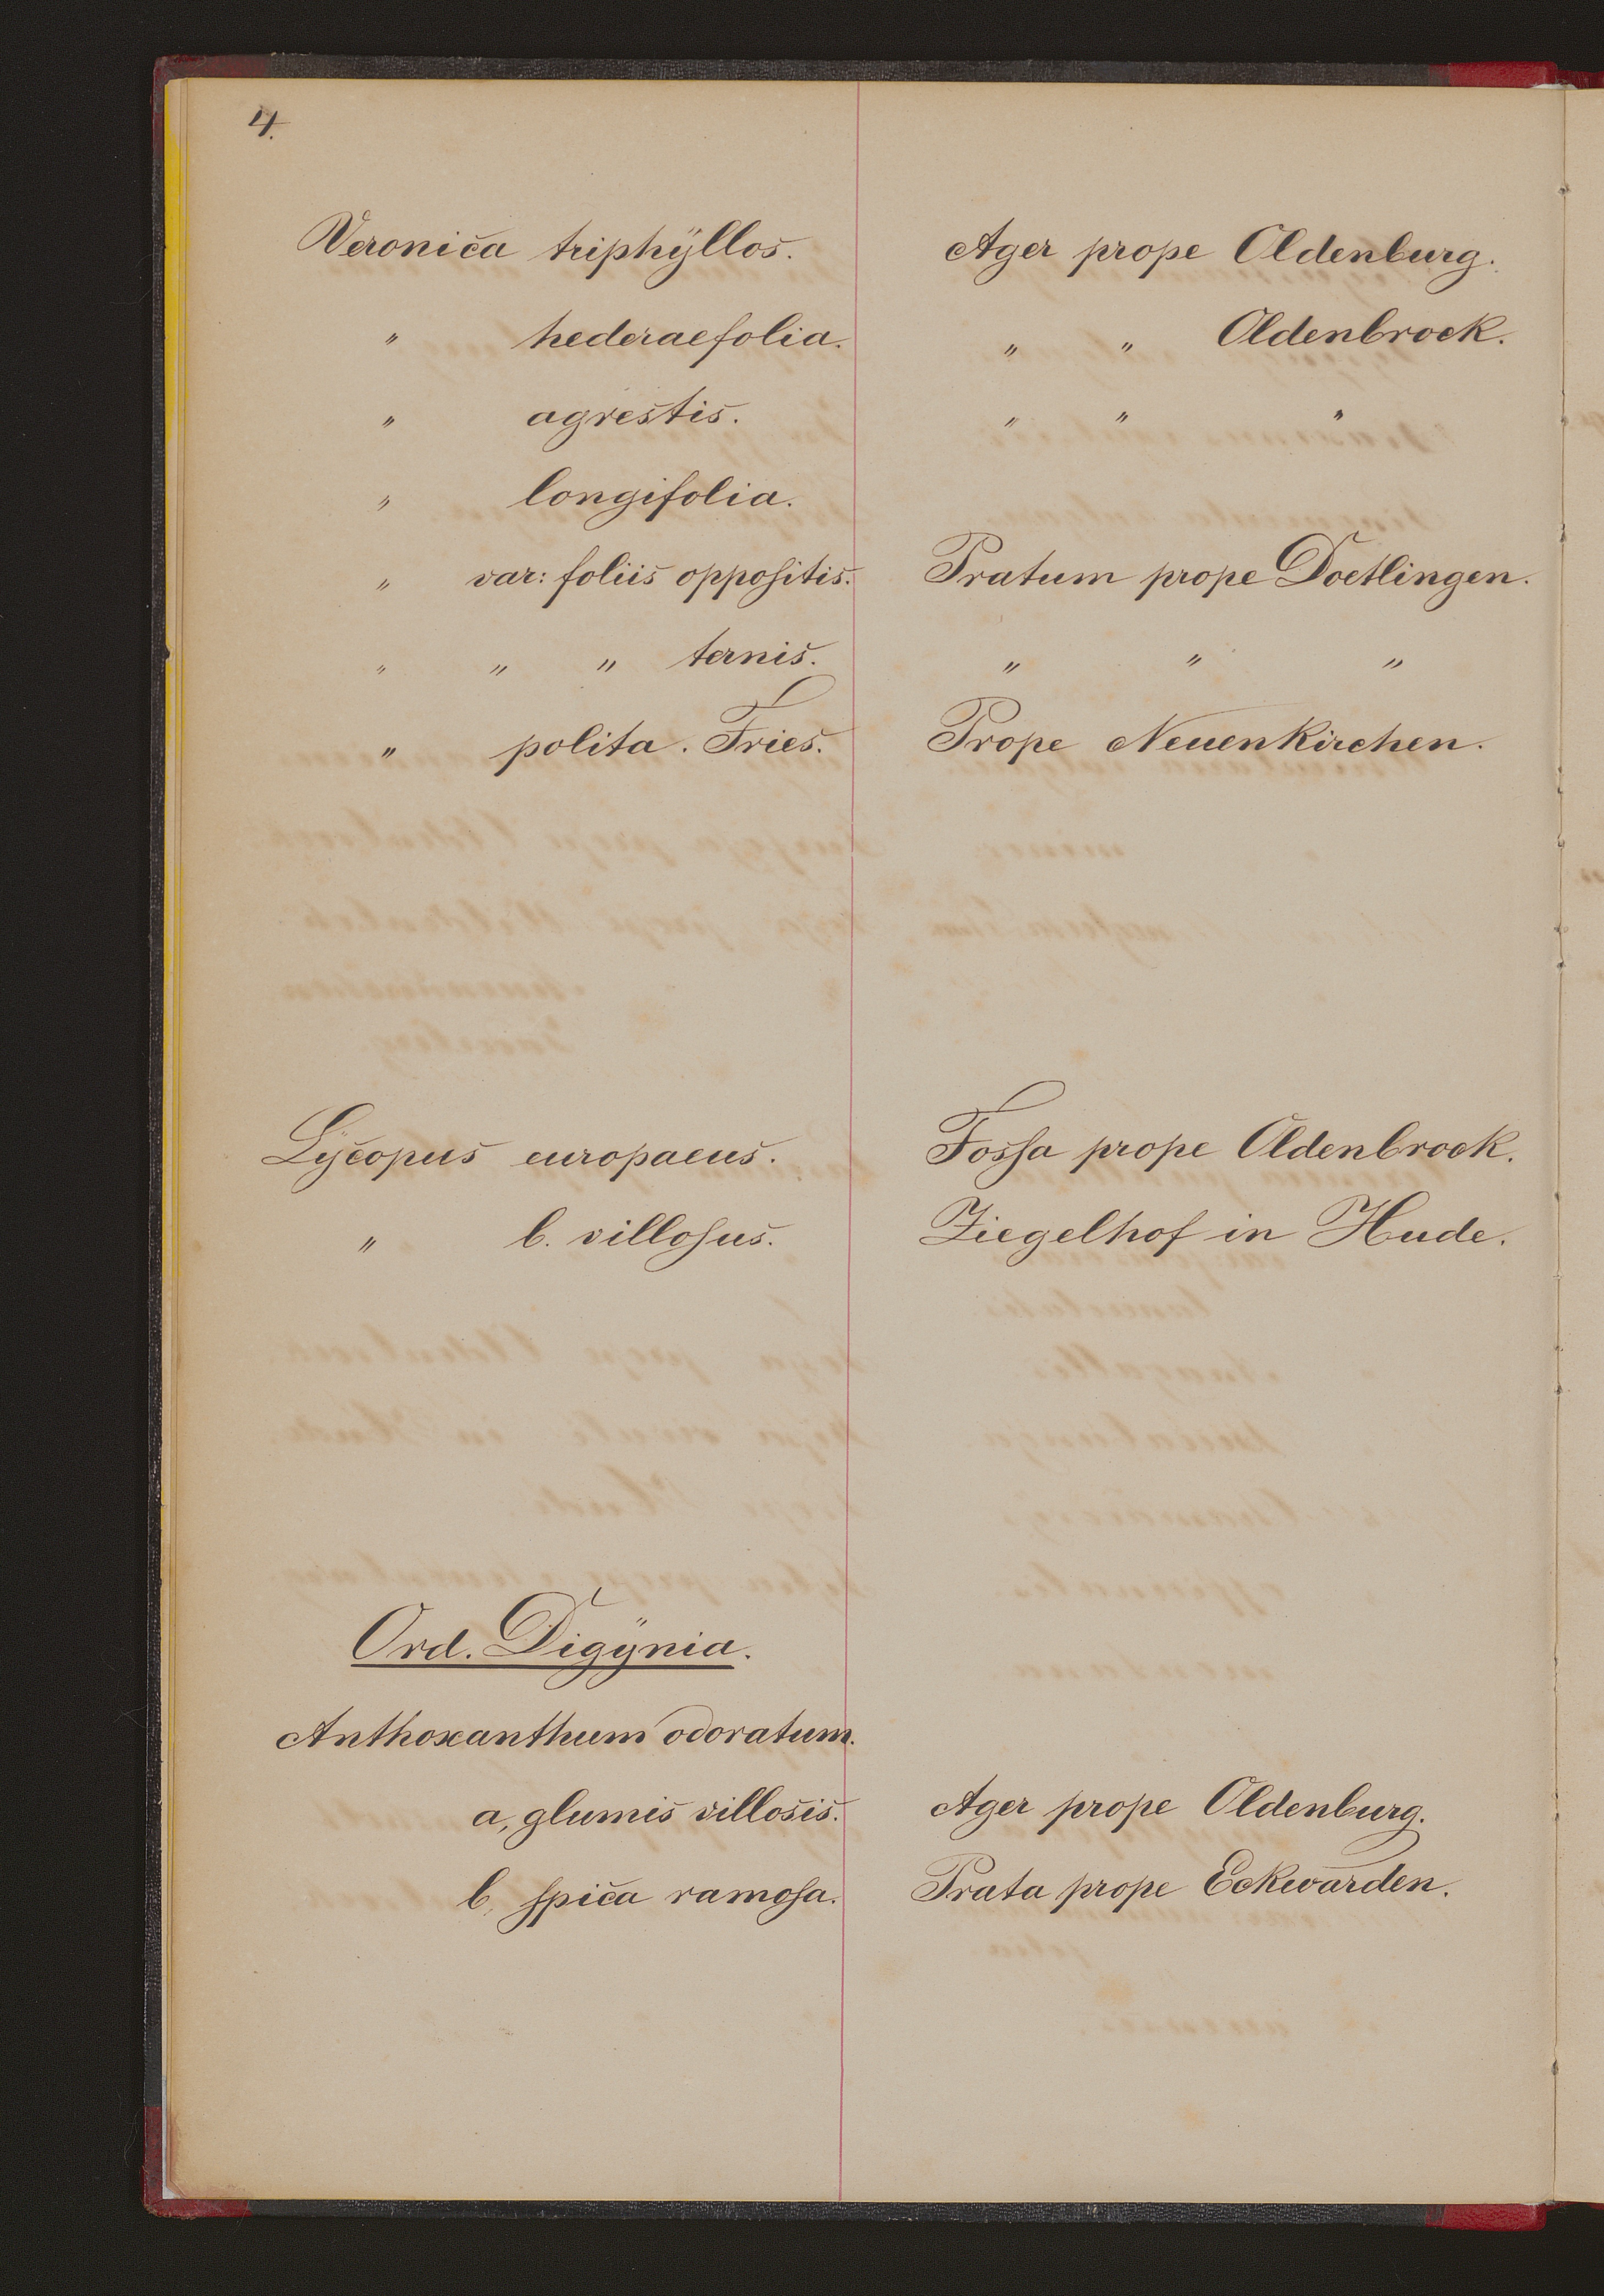 4.
Veronica triphÿllos. Ager prope Oldenburg.
" hederaefolia. " " Oldenbrock.
" agrestis. " " "
" longifolia.
" var: foliis oppoſitis. Pratum prope Doetlingen.
" " " ternis. " " "
" polita. Fries. Prope Neuenkirchen.
Lÿcopus europaeus. Fosſa prope Oldenbrock.
" b. villoſus. Ziegelhof in Hude.
Ord. Digÿnia.
Anthoxanthum odoratum.
a, glumis villosis. Ager prope Oldenburg.
b, ſpica ramoſa. Prata prope Eckwarden.